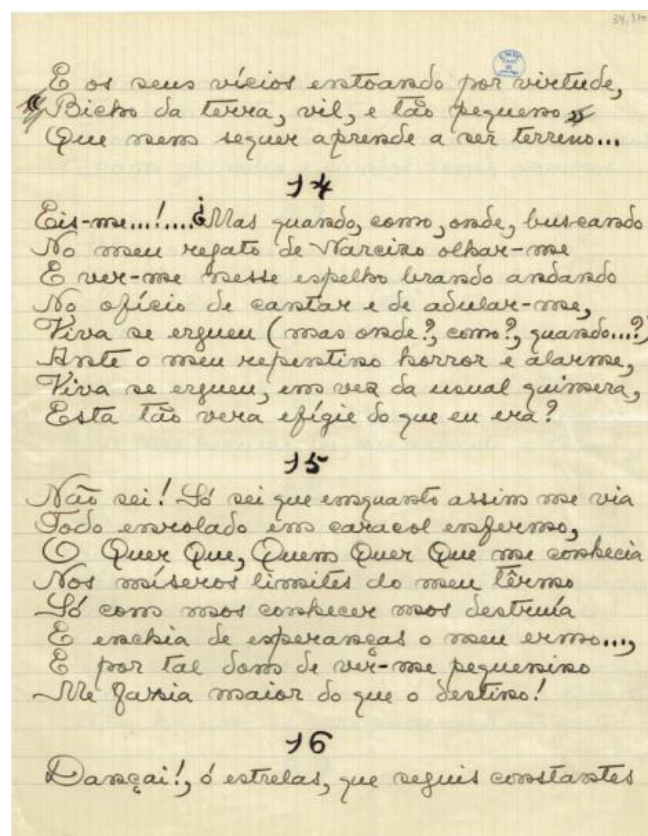 E os seus vícios entoando por virtude,
"Bicho da terra, vil, e tão pequeno"
Que nem sequer aprende a ser terreno...
14
Eis-me...!....¿Mas quando, como, onde, buscando
No meu regato de Narciso olhar-me
E ver-me nesse espelho brando andando
No ofício de cantar e de adular-me,
Viva se ergueu (mas onde?, como?, quando...?)
Ante o meu repentino horror e alarme,
Viva se ergueu, em vez da usual quimera,
Esta tão vera efígie do que eu era?
15
Não sei! Só sei que enquanto assim me via
Todo enrolado em caracol enfermo,
O Quer Que, Quem Quer Que me conhecia
Nos míseros limites do meu têrmo
Só com nos conhecer nos destruía
E enchia de esperanças o meu ermo...,
E por tal dom de ver-me pequenino
Me fazia maior do que o destino!
16
Dançai!, ó estrelas, que seguis constantes